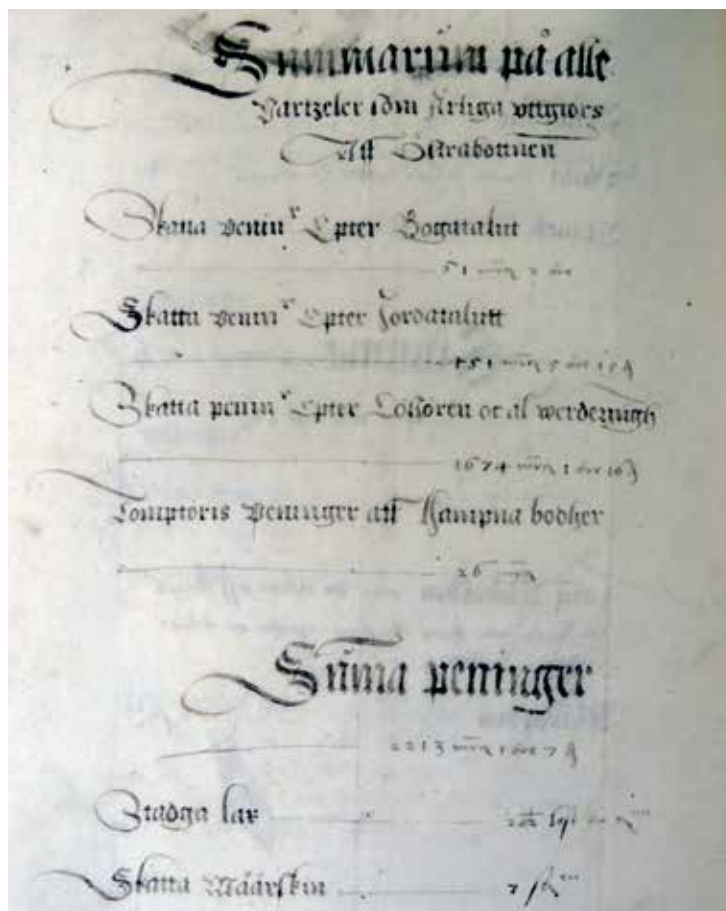 Summarum på alle
Partzeler som Årliga vttgiörs
Aff Österabotnnen
Skatta penin^r Epter Bogatalut
51 mrc 2 öre
Skatta penin^r Epter Jordatalutt
mrc 5 öre
Skatta penin^r Epter Lößören oc al werderingh
1674 mrc 1 öre 16 ₰
Tomptöris Peninger aff Hampna bodher
26 mrc
Summa peninger
2213 mrc 1 öre 7 ₰
Stadga lax
Skatta Måårskin
7